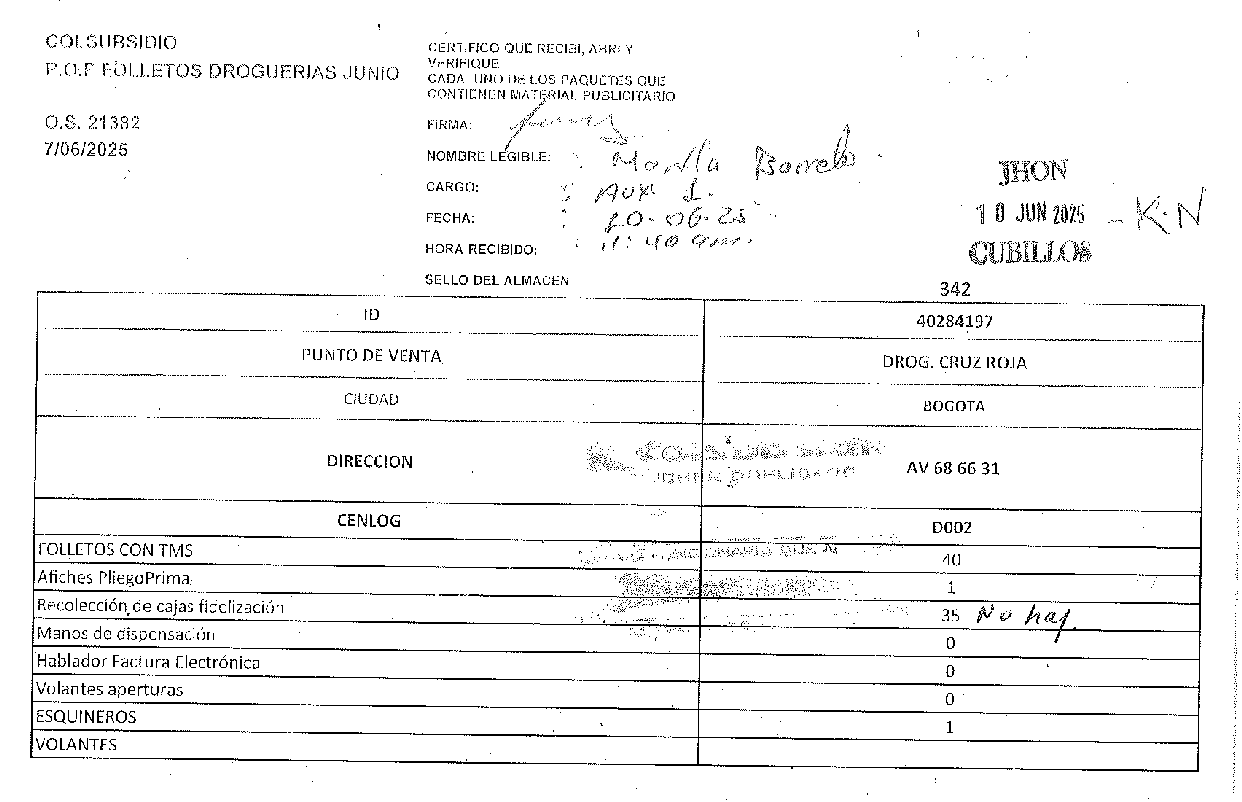 COLSUBSIDIO
P.O.P FOLLETOS DROGUERIAS JUNIO
O.S. 21382
7/06/2025
CERTIFICO QUE RECIBI, ABRI Y
VERIFIQUE
CADA UNO DE LOS PAQUETES QUE
CONTIENEN MATERIAL PUBLICITARIO
FIRMA:
NOMBRE LEGIBLE: Barreto
CARGO: Aux 1.
FECHA: 10-06-25
HORA RECIBIDO: 11:40 am.
SELLO DEL ALMACEN
JHON
10 JUN 2025 - K.N
CUBILLOS
342
ID 40284197
PUNTO DE VENTA DROG. CRUZ ROJA
CIUDAD BOGOTA
DIRECCION AV 68 66 31
CENLOG D002
FOLLETOS CON TMS 40
Afiches PliegoPrima 1
Recolección de cajas fidelización 35 No hay.
Manos de dispensación 0
Hablador Factura Electrónica 0
Volantes aperturas 0
ESQUINEROS 1
VOLANTES